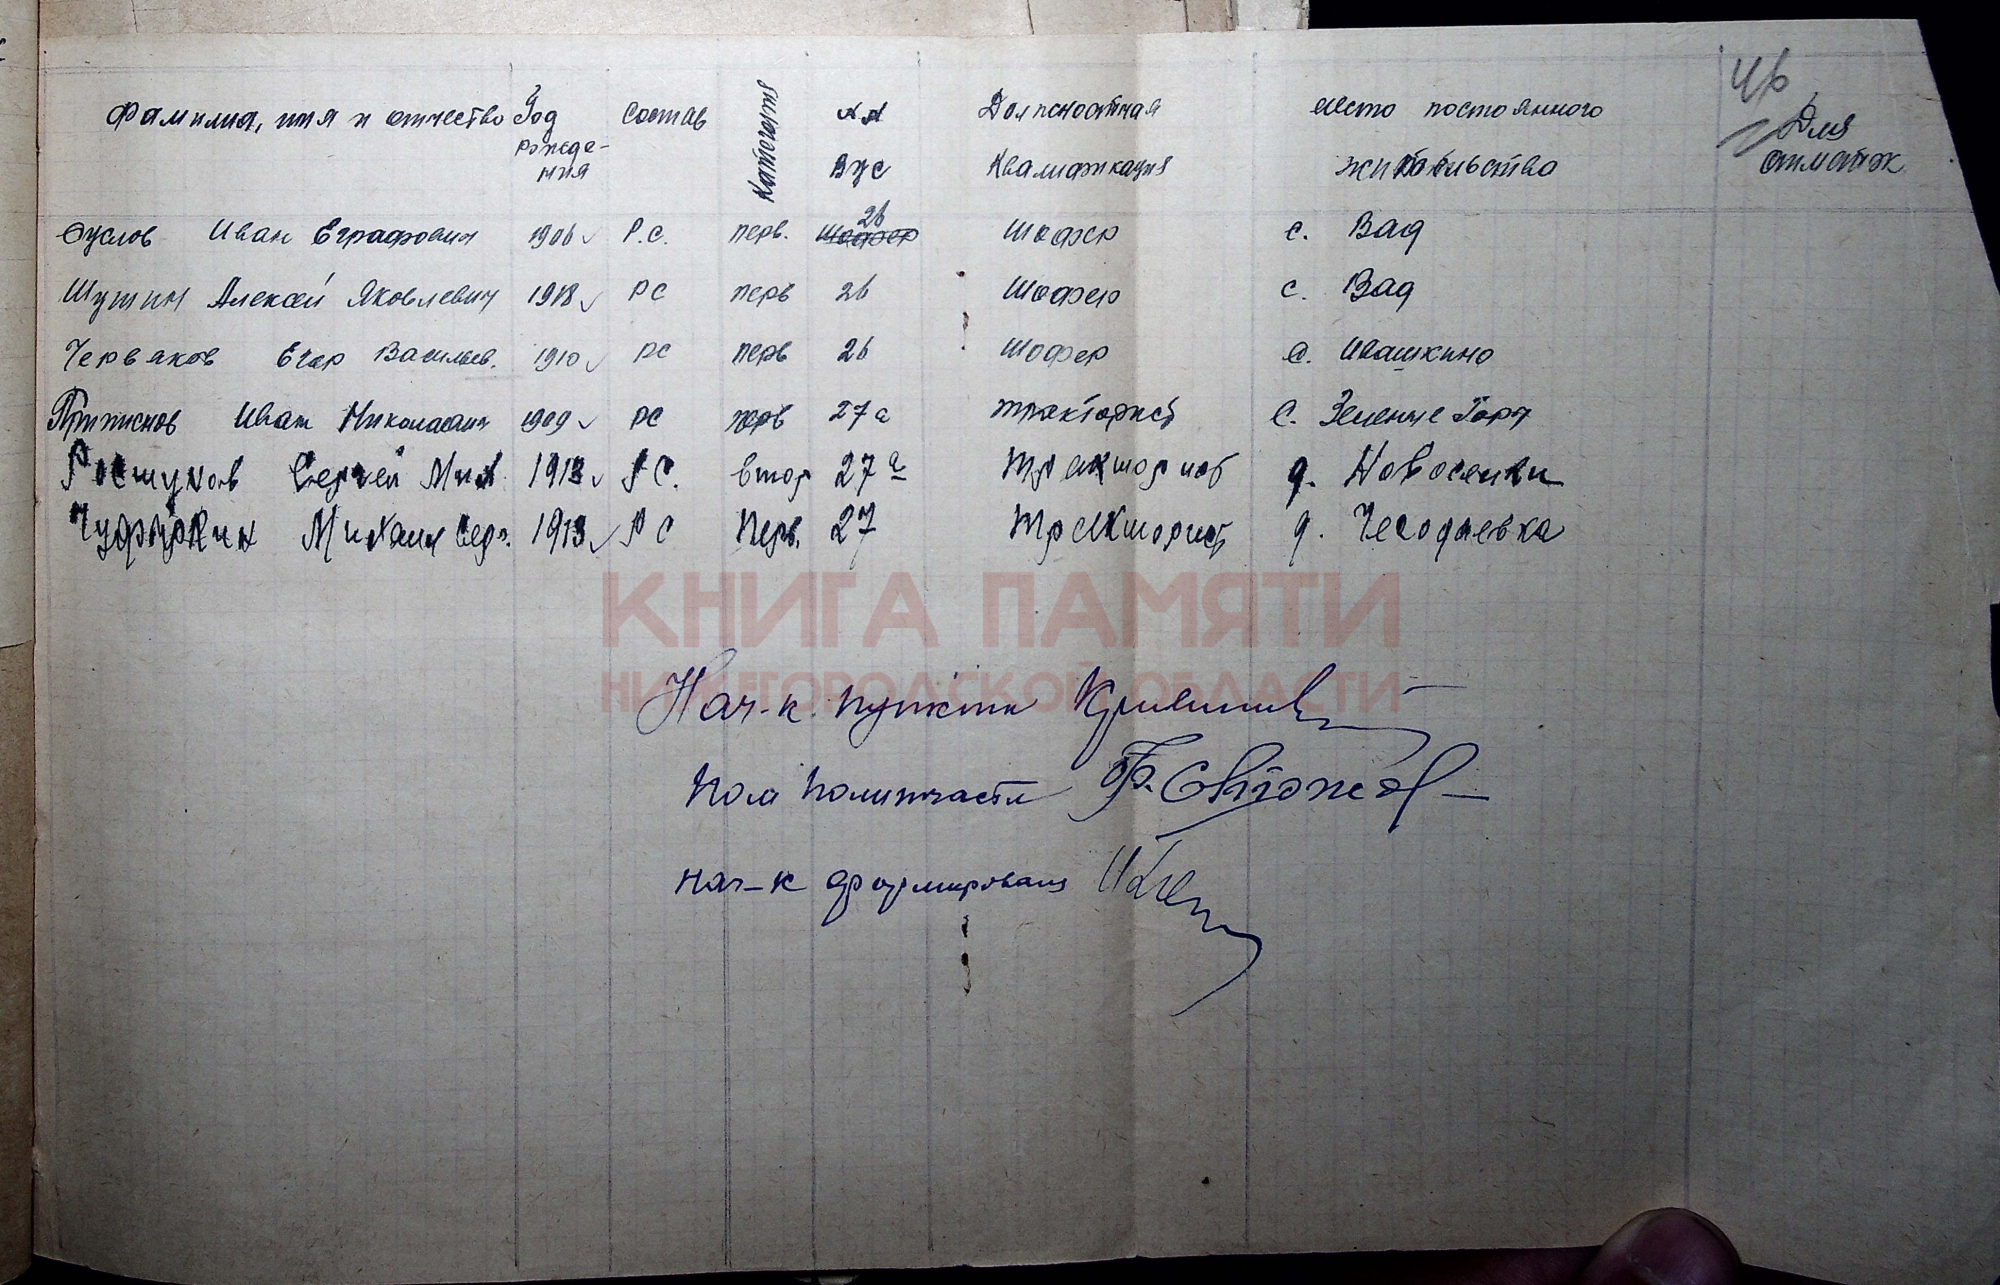 46
Фамилия, имя и отчество Год рождения Состав Категория №№ ВУС Должностная Квалификация место постоянного жительства Для отметок
Суслов Иван Еграфович 1906 Р.С. перв. 26 шофер шофер с. Вад
Шутин Алексей Яковлевич 1918 РС перв 26 шофер с. Вад
Червяков Егор Васильев. 1910 РС перв 26 шофер с. Ивашкино
Иван Николаевич 1909 РС перв 27а тракторист с. Зеленые Горы
Сергей Мих. 1913 РС. втор 27а тракторист д. Новоселки
Михаил Серг. 1913 РС Перв. 27 тракторист д. Чегодаевка
КНИГА ПАМЯТИ
НИЖЕГОРОДСКОЙ ОБЛАСТИ
Нач-к пункта
Пом Политчасти
нач-к формирования